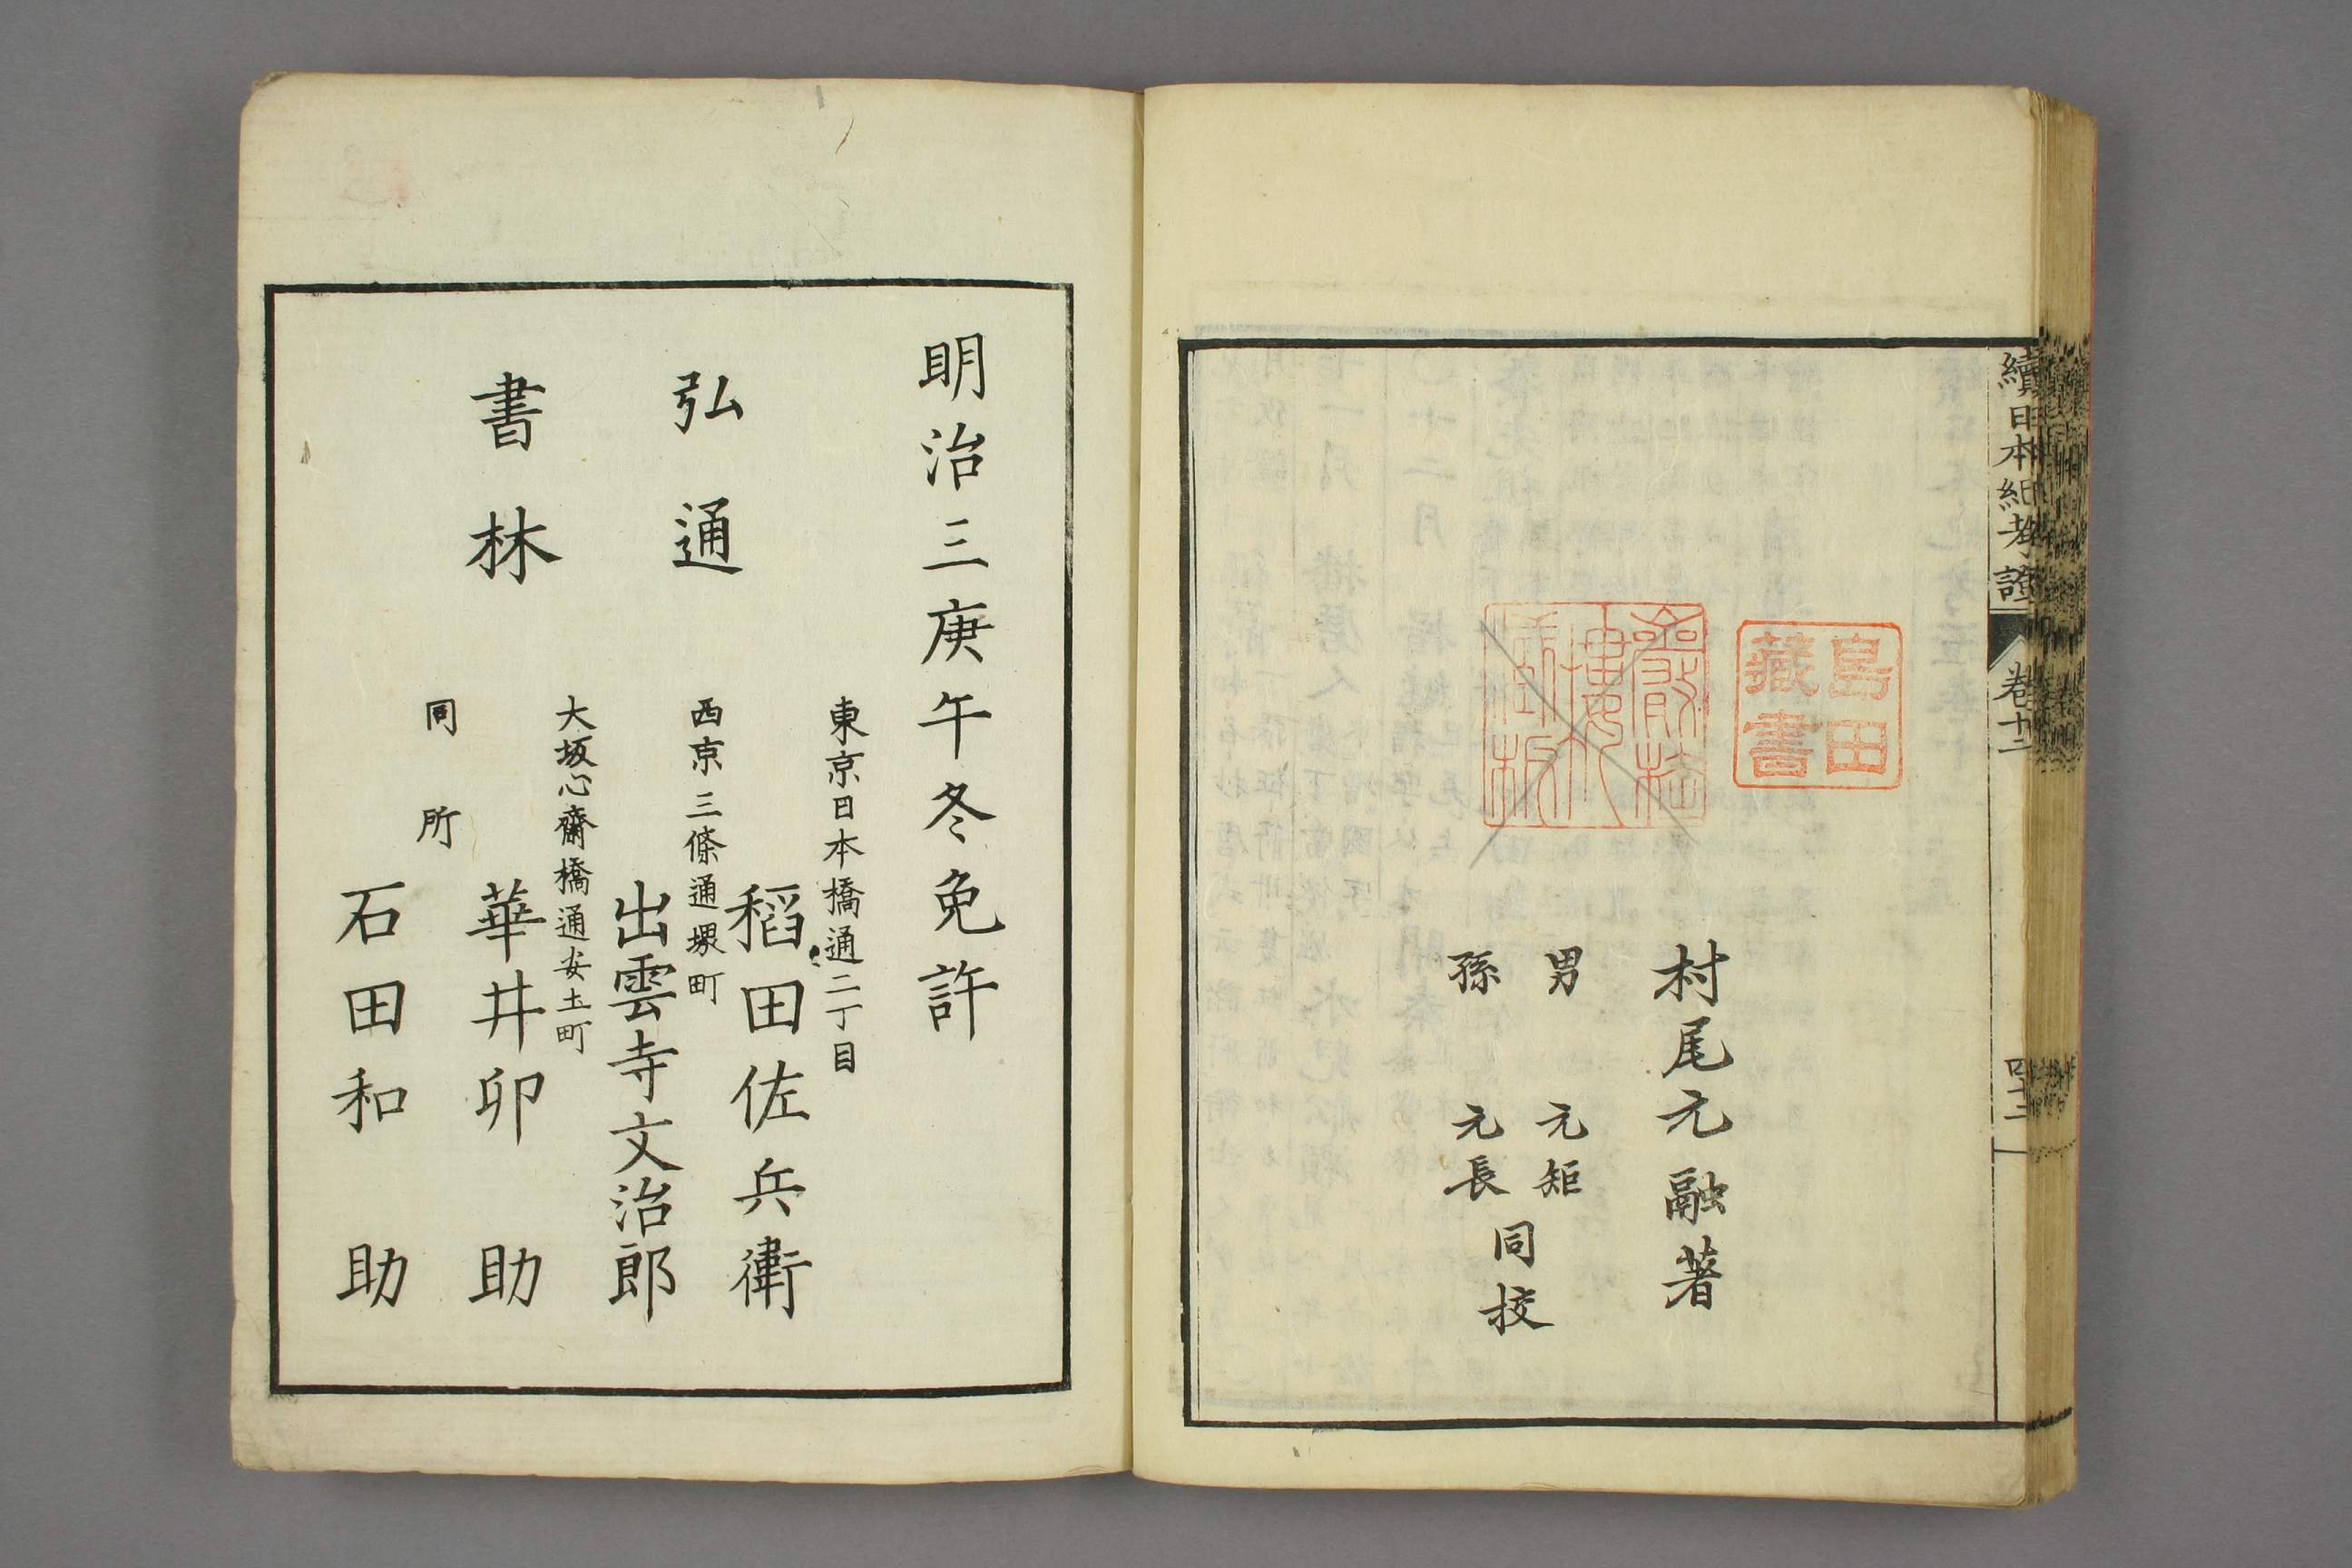 續日本紀考證
卷十二
四十二
島田
藏書
村尾元融著
男 元矩
孫 元長
同校
明治三庚午冬免許
弘通
書林
東京日本橋通二丁目
稻田佐兵衛
西京三條通堺町
出雲寺文治郎
大坂心齋橋通安土町
華井卯助
同所
石田和助